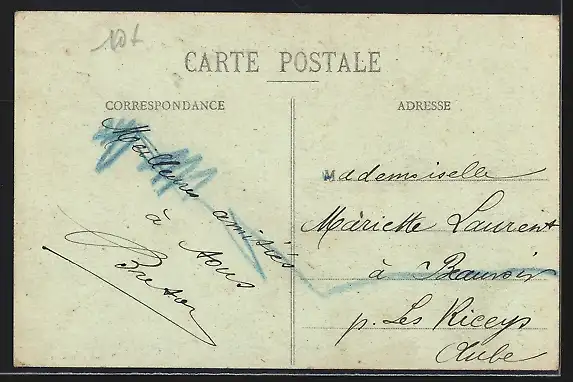 10f
CARTE POSTALE
CORRESPONDANCE
ADRESSE
Meilleures amitiés
à tous
Breton
Mademoiselle
Mariette Laurent
à Beauvoir
p. Les Riceys
Aube